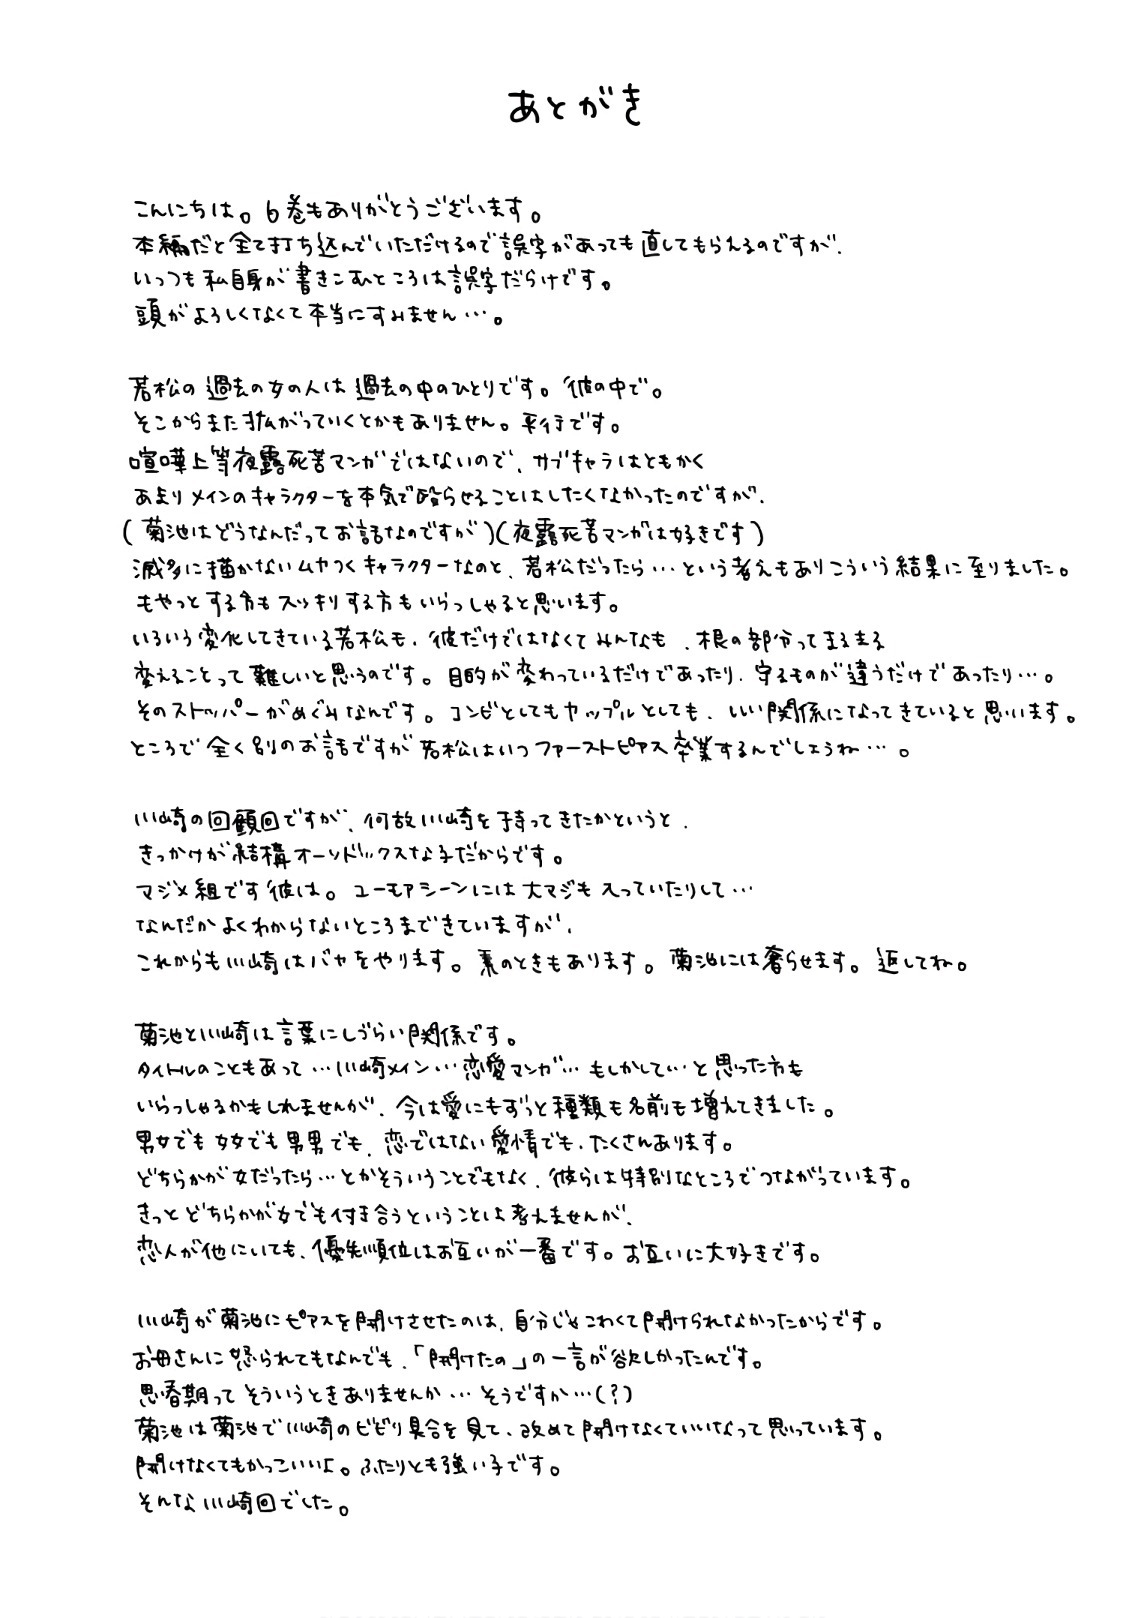 あとがき
こんにちは。6巻もありがとうございます。
本編だと全て打ち込んでいただけるので誤字があっても直してもらえるのですが、
いっつも私自身が書きこむところは誤字だらけです。
頭がよろしくなくて本当にすみません…。
若松の過去の女の人は過去の中のひとりです。彼の中で。
そこからまた拡がっていくとかもありません。平行です。
喧嘩上等夜露死苦マンガではないので、サブキャラはともかく
あまりメインのキャラクターを本気で殴らせることはしたくなかったのですが、
(菊池はどうなんだってお話なのですが)(夜露死苦マンガは好きです)
滅多に描かないムカつくキャラクターなのと、若松だったら…という考えもありこういう結果に至りました。
もやっとする方もスッキリする方もいらっしゃると思います。
いろいろ変化してきている若松も、彼だけではなくてみんなも、根の部分ってまるまる
変えることって難しいと思うのです。目的が変わっているだけであったり、守るものが違うだけであったり…。
そのストッパーがめぐみなんです。コンビとしてもカップルとしても、いい関係になってきていると思います。
ところで全く別のお話ですが若松はいつファーストピアス卒業するんでしょうね…。
川崎の回顧回ですが、何故川崎を持ってきたかというと、
きっかけが結構オーソドックスな子だからです。
マジメ組です彼は。ユーモアシーンには大マジも入っていたりして…
なんだかよくわからないところまできていますが、
これからも川崎はバカをやります。素のときもあります。菊池には奢らせます。返してね。
菊池と川崎は言葉にしづらい関係です。
タイトルのこともあって…川崎メイン…恋愛マンガ…もしかして…と思った方も
いらっしゃるかもしれませんが、今は愛にもずっと種類も名前も増えてきました。
男女でも女女でも男男でも、恋ではない愛情でも、たくさんあります。
どちらかが女だったら…とかそういうことでもなく、彼らは特別なところでつながっています。
きっとどちらかが女でも付き合うということは考えませんが、
恋人が他にいても、優先順位はお互いが一番です。お互いに大好きです。
川崎が菊池にピアスを開けさせたのは、自分じゃこわくて開けられなかったからです。
お母さんに怒られてもなんでも、「開けたの」の一言が欲しかったんです。
思春期ってそういうときありませんか…そうですか…(?)
菊池は菊池で川崎のビビり具合を見て、改めて開けなくていいなって思っています。
開けなくてもかっこいいよ。ふたりとも強い子です。
そんな川崎回でした。